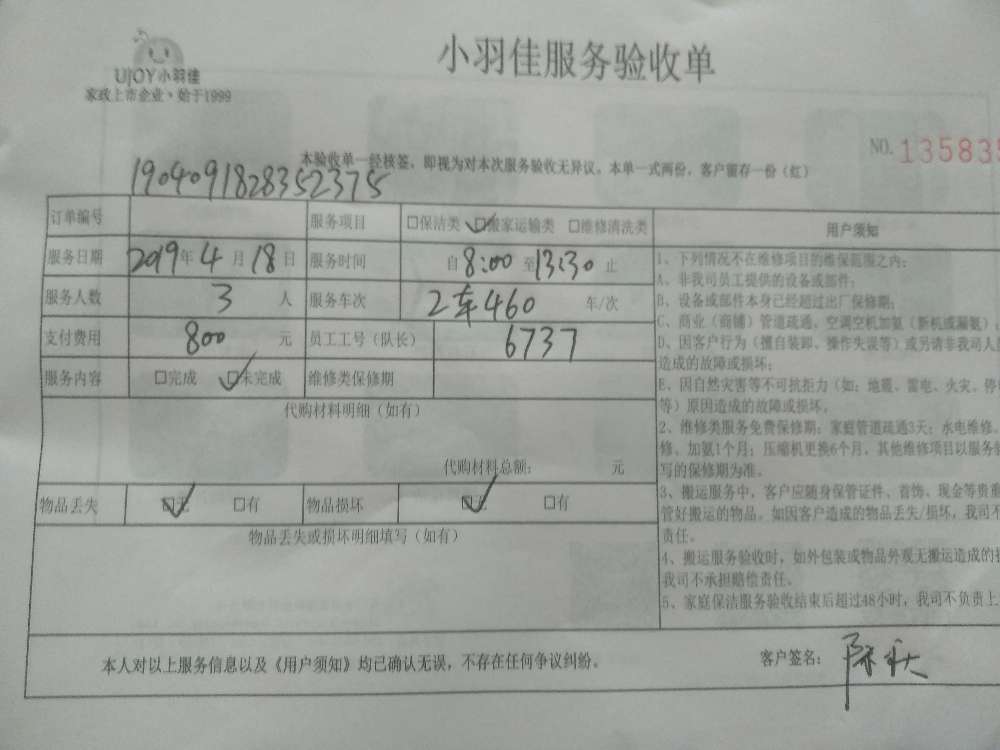 UJOY小羽佳
家政上市企业,始于1999
小羽佳服务验收单
NO. 135835
本验收单一经核签,即视为对本次服务验收无异议。本单一式两份,客户留存一份(红)
1904091828352375
订单编号 服务项目 □保洁类 ☑搬家运输类 □维修清洗类
服务日期 2019年4月18日 服务时间 自8:00至13:30止
服务人数 3人 服务车次 2车460 车/次
支付费用 800元 员工工号(队长) 6737
服务内容 □完成 ☑未完成 维修类保修期
代购材料明细(如有)
代购材料总额: 元
物品丢失 ☑无 □有 物品损坏 ☑无 □有
物品丢失或损坏明细填写(如有)
用户须知
1、下列情况不在维修项目的维保范围之内:
A、非我司员工提供的设备或部件;
B、设备或部件本身已经超过出厂保修期;
C、商业(商铺)管道疏通、空调空机加氨(新机或漏氨)
D、因客户行为(擅自装卸、操作失误等)或另请非我司人
造成的故障或损坏;
E、因自然灾害等不可抗拒力(如:地震、雷电、火灾、停
等)原因造成的故障或损坏。
2、维修类服务免费保修期:家庭管道疏通3天;水电维修、
修、加氨1个月;压缩机更换6个月,其他维修项目以服务
写的保修期为准。
3、搬运服务中,客户应随身保管证件、首饰、现金等贵重
管好搬运的物品。如因客户造成的物品丢失/损坏,我司不
责任。
4、搬运服务验收时,如外包装或物品外观无搬运造成的
我司不承担赔偿责任。
5、家庭保洁服务验收结束后超过48小时,我司不负责上
本人对以上服务信息以及《用户须知》均已确认无误,不存在任何争议纠纷。
客户签名: